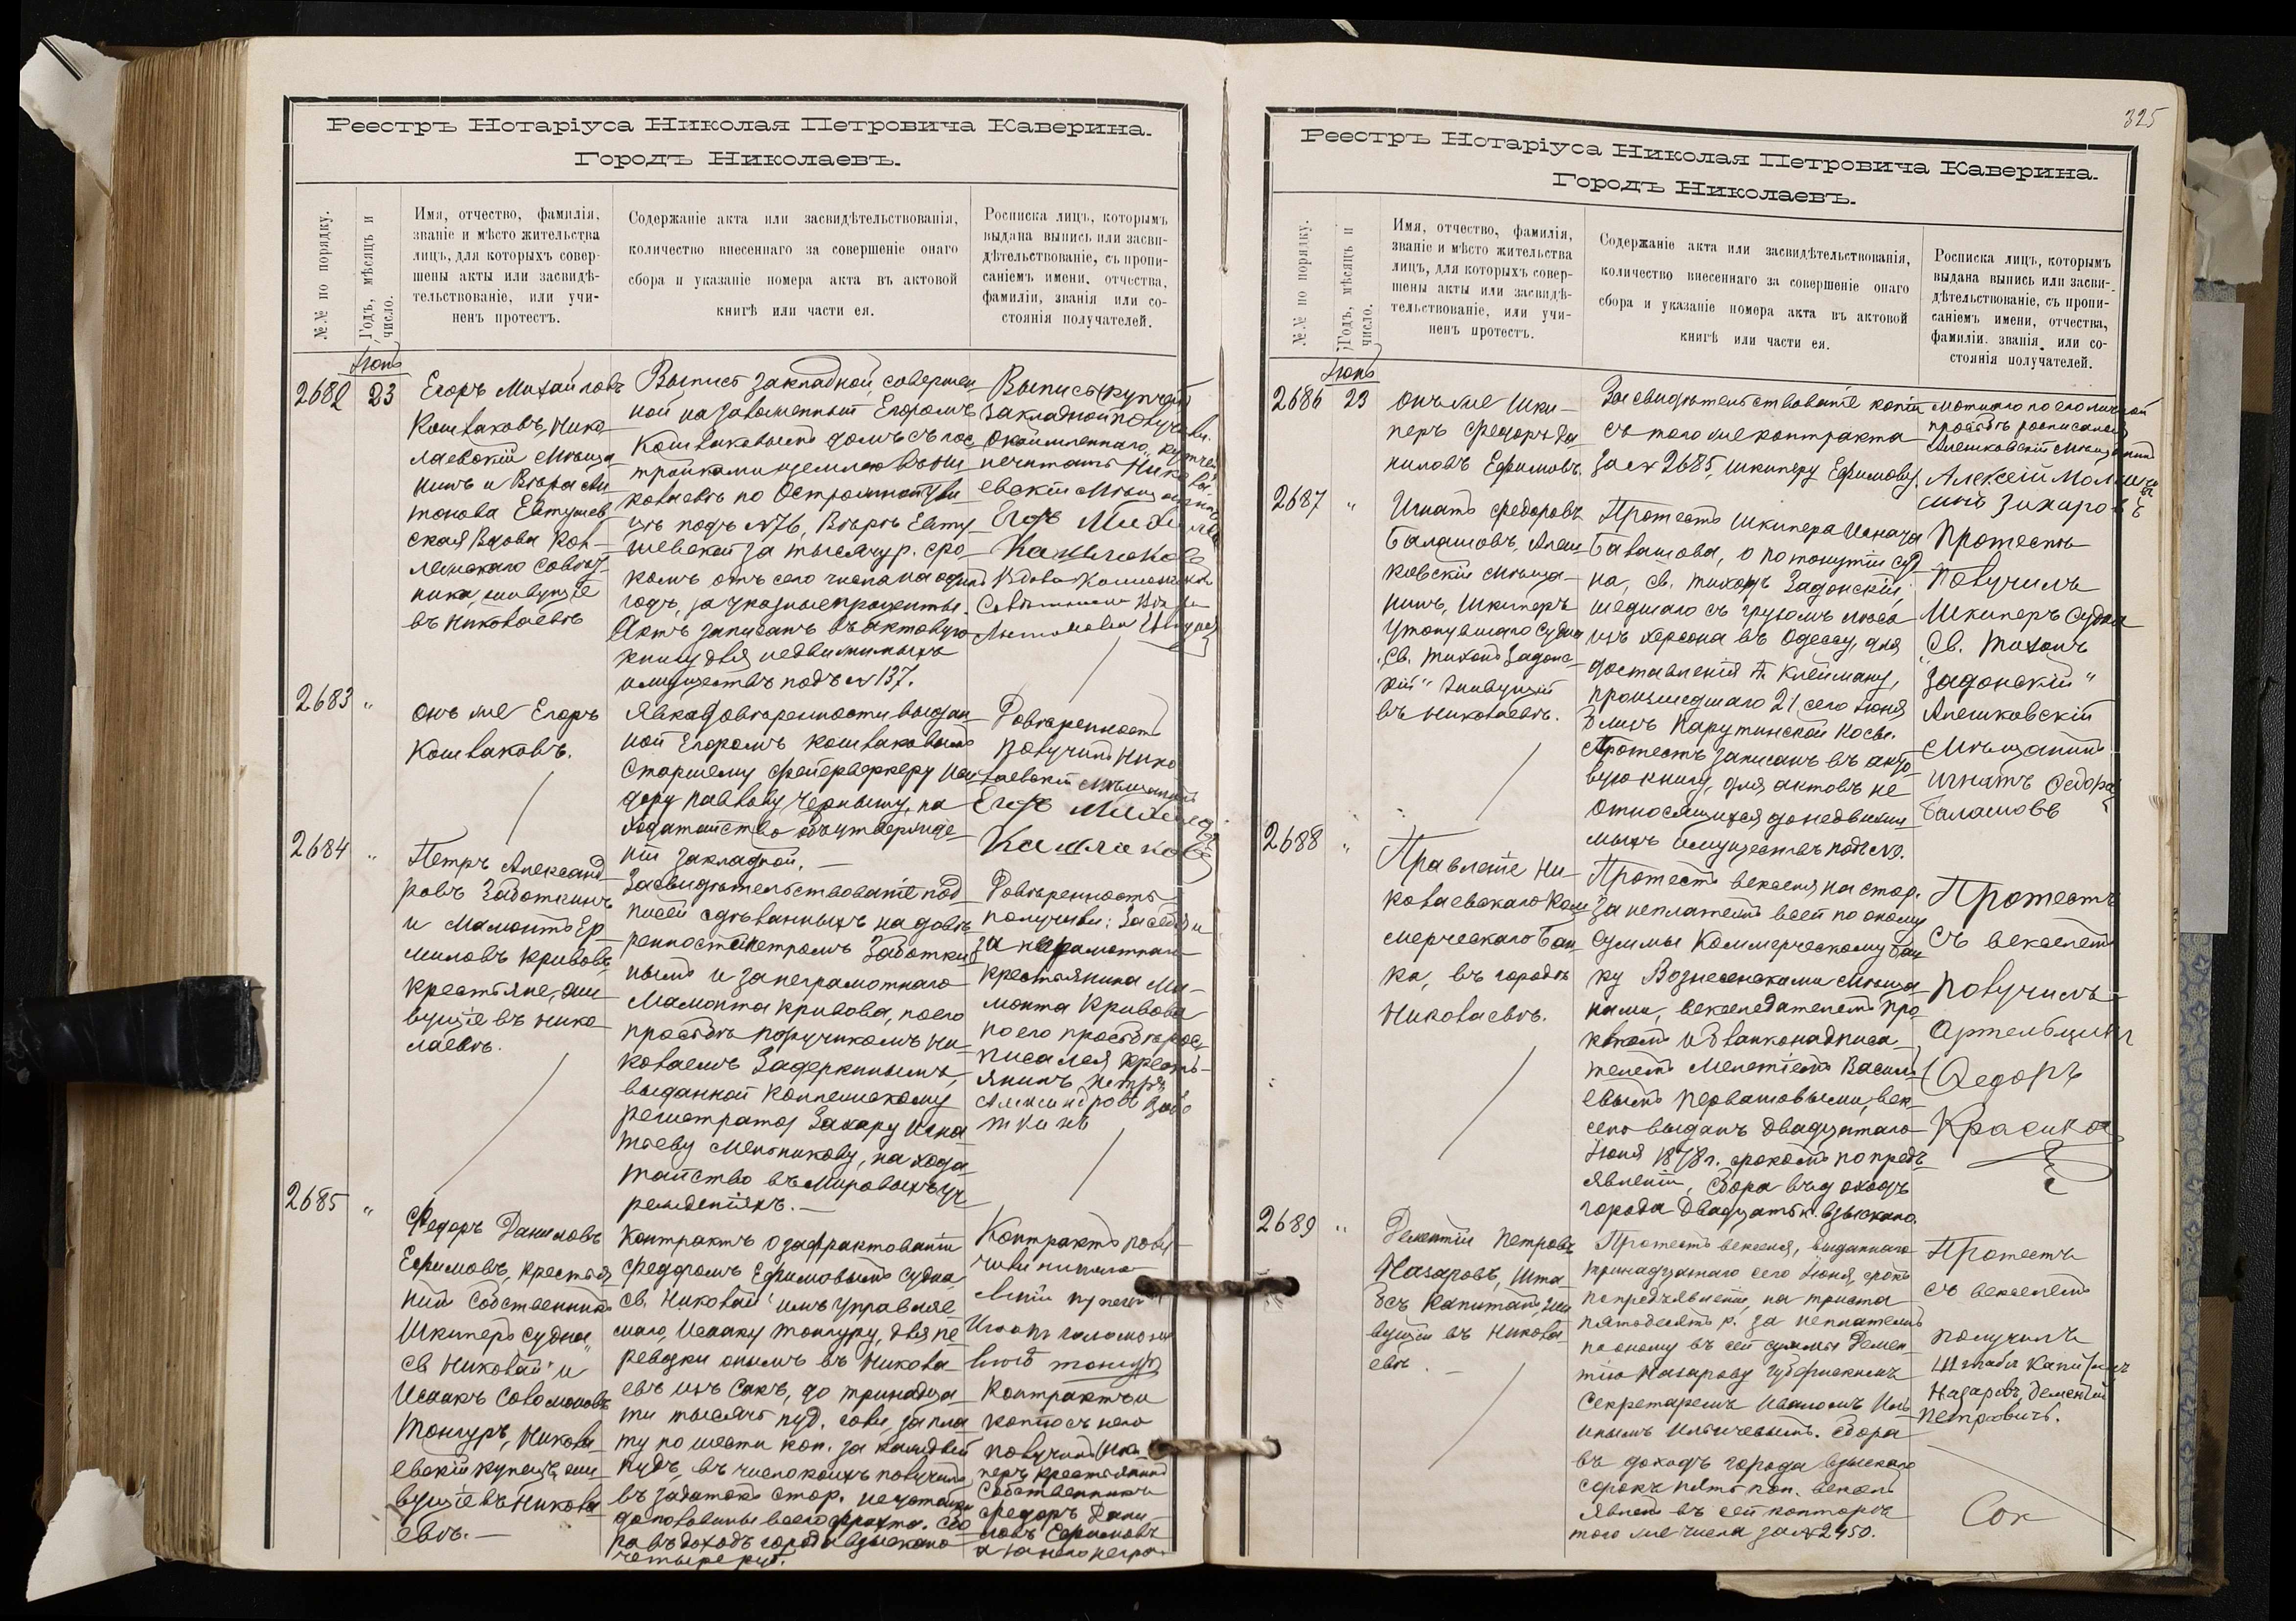 Реестръ Нотаріуса Николая Петровича Каверина.
Городъ Николаевъ.
№.№ по порядку.
Годъ, мѣсяцъ и
число.
Имя, отчество, фамилія,
званіе и мѣсто жительства
лицъ, для которыхъ совер-
шены акты или засвидѣ-
тельствованіе, или учи-
ненъ протестъ.
Содержаніе акта или засвидѣтельствованія,
количество внесеннаго за совершеніе онаго
сбора и указаніе номера акта въ актовой
книгѣ или части ея.
Росписка лицъ, которымъ
выдана выпись или засви-
дѣтельствованіе, съ пропи-
саніемъ имени, отчества,
фамиліи, званія или со-
стоянія получателей.
Іюнь
2682
23
Егоръ Михайловъ
Кошлаковъ, Нико-
лаевскій мѣща-
нинъ и Вѣра Ан-
тонова Евтушев-
ская Вдова Кол-
лежскаго Совѣт-
ника, живущіе
въ Николаевѣ
Выпись закладной, совершен-
ной на заложенный Егоромъ
Кошлаковымъ домъ съ пос-
тройками и землею въ Ни-
колаевѣ по
подъ №76, Вѣрѣ Евту-
шевской за тысячу р. сро-
комъ отъ сего числа на одинъ
годъ, за указные проценты.
Актъ записанъ въ актовую
книгу для недвижимыхъ
имуществъ подъ №137.
Выпись
закладной получили.
Николa-
евскій мѣщанинъ
Егоръ Михайловъ
Кашлаковъ
Вдова
2683
"
онъ же Егоръ
Кошлаковъ.
Явка довѣренности, выдан-
ной Егоромъ Кошлаковымъ
Старшему фейерверкеру Иси-
дору Павлову Чернышу, на
ходатайство объ утвержде-
ніи закладной. —
Довѣренность
получилъ Нико-
лаевскій мѣщанинъ
Егоръ Михайловъ
Кашлаковъ
2684
"
Петръ Александ-
ровъ Заботкинъ
и Мамонтъ Ер-
миловъ Кривовъ,
крестьяне, жи-
вущіе въ Нико-
лаевѣ.
Засвидѣтельствованіе под-
писей сдѣланныхъ на довѣ-
ренности Петромъ Заботки-
нымъ и за неграмотнаго
Мамонта Кривова, по его
просьбѣ поручикомъ Ни-
колаемъ Задеркинымъ,
выданной Коллежскому
регистратору Захару Игна-
тьеву Мельникову, на хода-
тайство въ Мировыхъ уч-
режденіяхъ. —
Довѣренность
получили: За себя и
за неграмотнаго
крестьянина Ма-
монта Кривова
по его просьбѣ рос-
писался кресть-
янинъ Петръ
Александровъ Забо
ткинъ
2685
"
Федоръ Даниловъ
Ефимовъ, крестья-
нинъ Собственникъ
Шкиперъ Судна
"Св. Николай" и
Исаакъ Соломоновъ
Тонгуръ, Никола-
евскій купецъ, жи-
вущіе въ Никола-
евѣ. —
Контрактъ о зафрахтованіи
Федоромъ Ефимовымъ судна
"Св. Николай" имъ управляе-
маго, Исааку Тонгуру, для пе-
ревозки онымъ въ Никола-
евъ изъ Сакъ, до тринадца-
ти тысячъ пуд. соли, за пла-
ту по шести коп. за каждый
пудъ, въ число коихъ получилъ
въ задатокъ сто р.
до половины всего фрахта. Сбо-
ра въ доходъ города взыскано
четыре руб.
Контрактъ полу-
чилъ никола-
евскій купецъ
Контрактъ и
копію съ него
получилъ Шки-
перъ, крестьянинъ
Собственникъ
Федоръ Дани-
ловъ Ефимовъ
а за него негра-
325
Реестръ Нотаріуса Николая Петровича Каверина.
Городъ Николаевъ.
№.№ по порядку.
Годъ, мѣсяцъ и
число.
Имя, отчество, фамилія,
званіе и мѣсто жительства
лицъ, для которыхъ совер-
шены акты или засвидѣ-
тельствованіе, или учи-
ненъ протестъ.
Содержаніе акта или засвидѣтельствованія,
количество внесеннаго за совершеніе онаго
сбора и указаніе номера акта въ актовой
книгѣ или части ея.
Росписка лицъ, которымъ
выдана выпись или засви-
дѣтельствованіе, съ пропи-
саніемъ имени, отчества,
фамиліи, званія, или со-
стоянія получателей.
Іюнь
2686
23
онъ же Шки-
перъ Федоръ Да-
ниловъ Ефимовъ.
Засвидѣтельствованіе копіи
съ того же контракта
за № 2685, шкиперу Ефимову.
мотнаго по его личной
просьбѣ росписался
Алешковскій мѣщанинъ
Алексѣй
Захаровъ
2687
"
Игнатъ Федоровъ
Балашовъ, Алеш-
ковскій мѣща-
нинъ, Шкиперъ
утонувшаго судна
"Св. Тихонъ Задонс-
кій" живущій
въ Николаевѣ.
Протестъ Шкипера Игната
Балашова, о потонутіи суд-
на, Св. Тихонъ Задонскій,
шедшаго съ грузомъ лѣса
изъ Херсона въ Одессу, для
доставленія Г. Клейману,
происшедшаго 21 сего Іюня
близъ Парутинской Косы.
Протестъ записанъ въ акто-
вую книгу, для актовъ не
относящихся до недвижи-
мыхъ имуществъ подъ №.
Протестъ
получилъ
Шкиперъ Судна
"Св. Тихонъ
Задонскій"
Алешковскій
Мѣщанинъ
Игнатъ Федоровъ
Балашовъ
2688
"
Правленіе Ни-
колаевскаго Ком-
мерческаго Бан-
ка, въ городѣ
Николаевѣ.
Протестъ векселя на сто р.
за неплатежъ всей по оному
суммы Коммерческому Бан-
ку Вознесенскими мѣща-
нами, векселедателемъ Про-
кофіемъ и бланконадписа-
телемъ Мелетіемъ Василь-
евымъ Первашовыми, век-
сель выданъ двадцатаго
Іюня 1878 г. срокомъ по предъ-
явленіи, Сбора въ доходъ
города двадцать к. взыскано.
Протестъ
съ векселемъ
получилъ
Артельщикъ
Федоръ
Красиковъ
2689
"
Дементій Петровъ
Назаровъ, Шта-
бсъ Капитанъ, жи-
вущій въ Никола-
евѣ. —
Протестъ векселя, выданнаго
тринадцатаго сего Іюня, срокъ
по предъявленіи, на триста
пятьдесятъ р. за неплатежъ
по оному въ сей суммы Демен-
тію Назарову Губернскимъ
Секретаремъ Иваномъ
Ильичевымъ. Сбора
въ доходъ города взыскано
сорокъ пять коп. вексель
явленъ въ сей конторѣ
того же числа за № 2450.
Протестъ
съ векселемъ
получилъ
Штабсъ Капитанъ
Назаровъ, Дементій
Петровичъ.